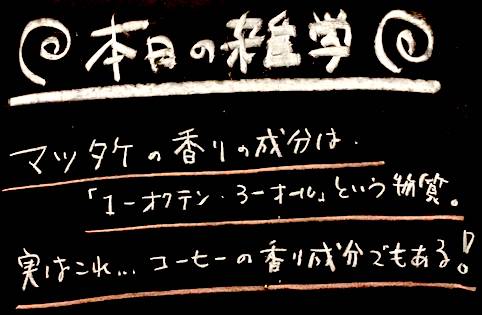 本日の雑学
マツタケの香りの成分は
「1-オクテン・3-オール」という物質。
実はこれ… コーヒーの香り成分でもある!